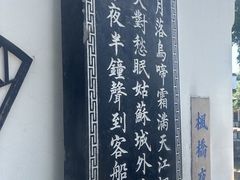 月落烏啼霜滿天江
火對愁眠姑蘇城外
夜半鐘聲到客船
楓橋